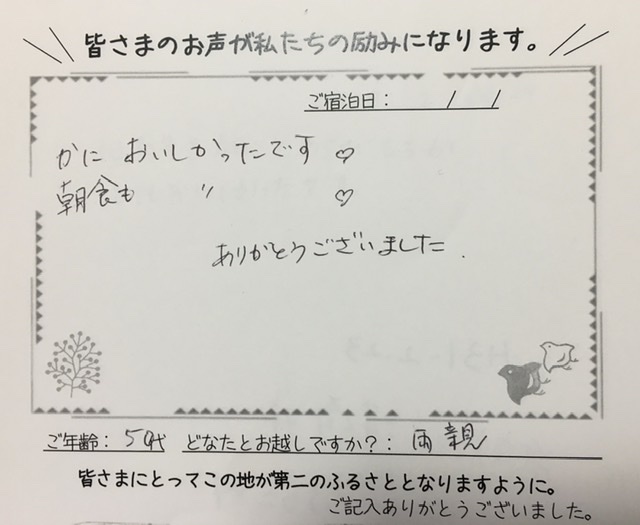 皆さまのお声が私たちの励みになります。
ご宿泊日： / /
かに おいしかったです ♡
朝食も 〃 ♡
ありがとうございました.
ご年齢：50代 どなたとお越しですか？：両親
皆さまにとってこの地が第二のふるさととなりますように。
ご記入ありがとうございました。